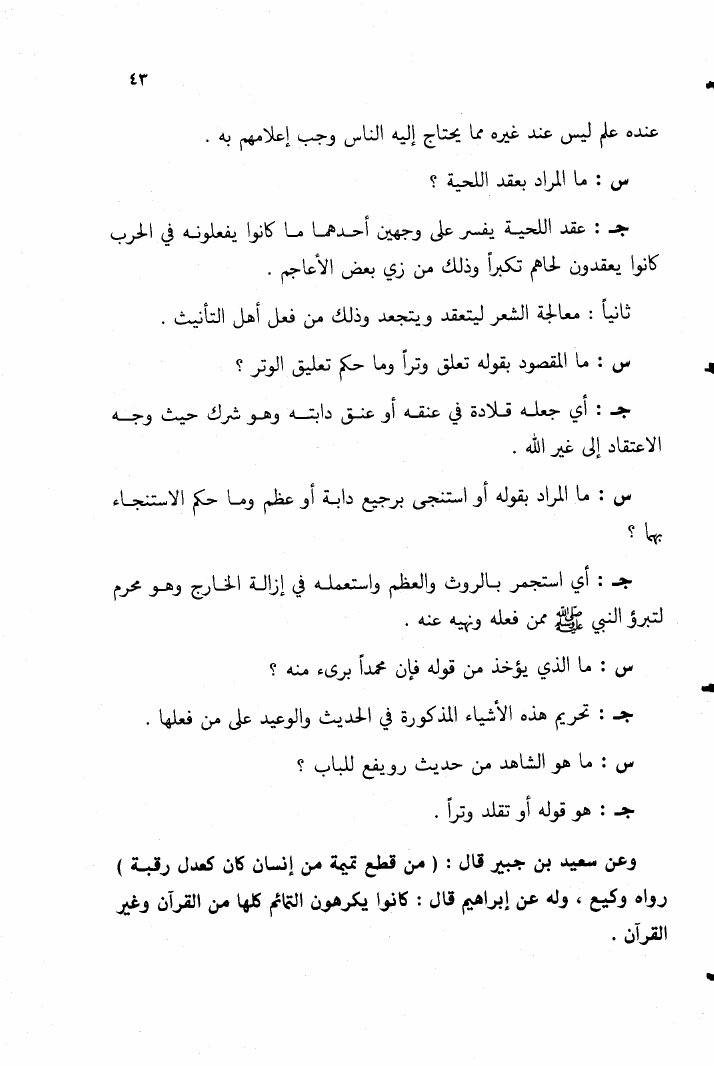 ٤٣
عنده علم ليس عند غيره مما يحتاج إليه الناس وجب إعلامهم به .
س : ما المراد بعقد اللحية ؟
جـ : عقد اللحيـة يفسر على وجهين أحـدهمـا مـا كانوا يفعلونـه في الحرب
كانوا يعقدون لحاهم تكبراً وذلك من زي بعض الأعاجم .
ثانياً : معالجة الشعر ليتعقد ويتجعد وذلك من فعل أهل التأنيث .
س : ما المقصود بقوله تعلق وتراً وما حكم تعليق الوتر ؟
جـ : أي جعلـه قـلادة في عنقـه أو عنـق دابتـه وهـو شرك حيث وجـه
الاعتقاد إلى غير الله .
س : ما المراد بقوله أو استنجى برجيع دابـة أو عظم ومـا حكم الاستنجـاء
بها ؟
جـ : أي استجمر بـالروث والعظم واستعملـه في إزالـة الخـارج وهـو محرم
لتبرؤ النبي ﷺ ممن فعله ونهيه عنه .
س : ما الذي يؤخذ من قوله فإن محمداً بريء منه ؟
جـ : تحريم هذه الأشياء المذكورة في الحديث والوعيد على من فعلها .
س : ما هو الشاهد من حديث رويفع للباب ؟
جـ : هو قوله أو تقلد وتراً .
وعن سعيد بن جبير قال : ( من قطع تميمة من إنسان كان كعدل رقبـة )
رواه وكيع ، وله عن إبراهيم قال : كانوا يكرهون التمائم كلها من القرآن وغير
القرآن .